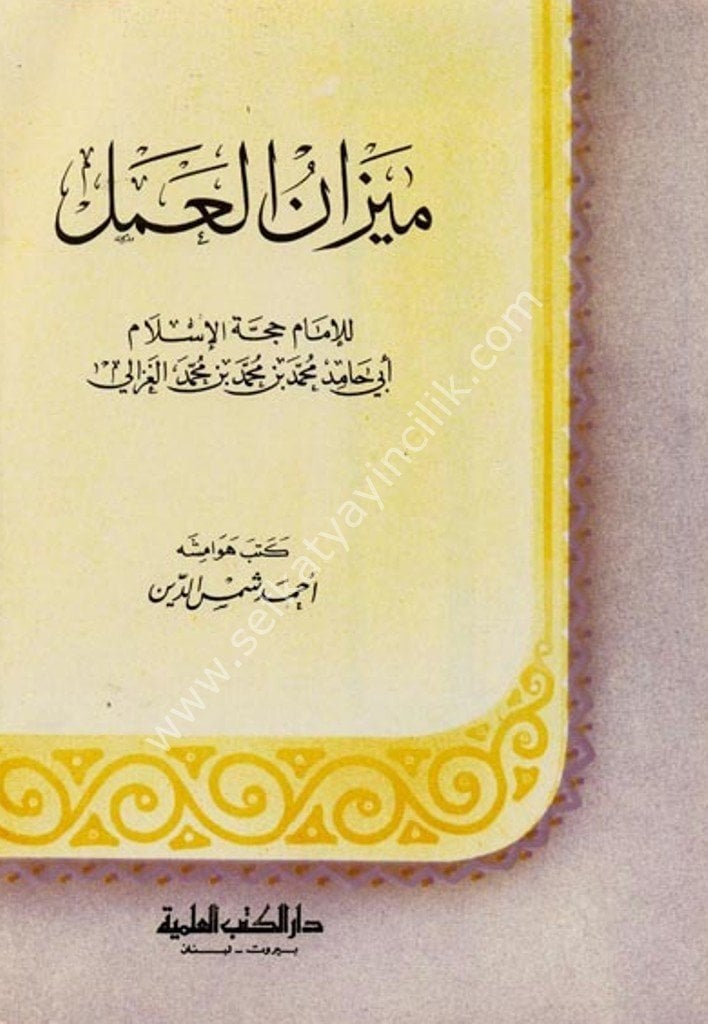 ميزان العمل
للإمام حجة الإسلام
أبي حامد محمد بن محمد بن محمد الغزالي
كتب هوامشه
أحمد شمس الدين
دار الكتب العلمية
بيروت - لبنان
www.selsatyayincilik.com